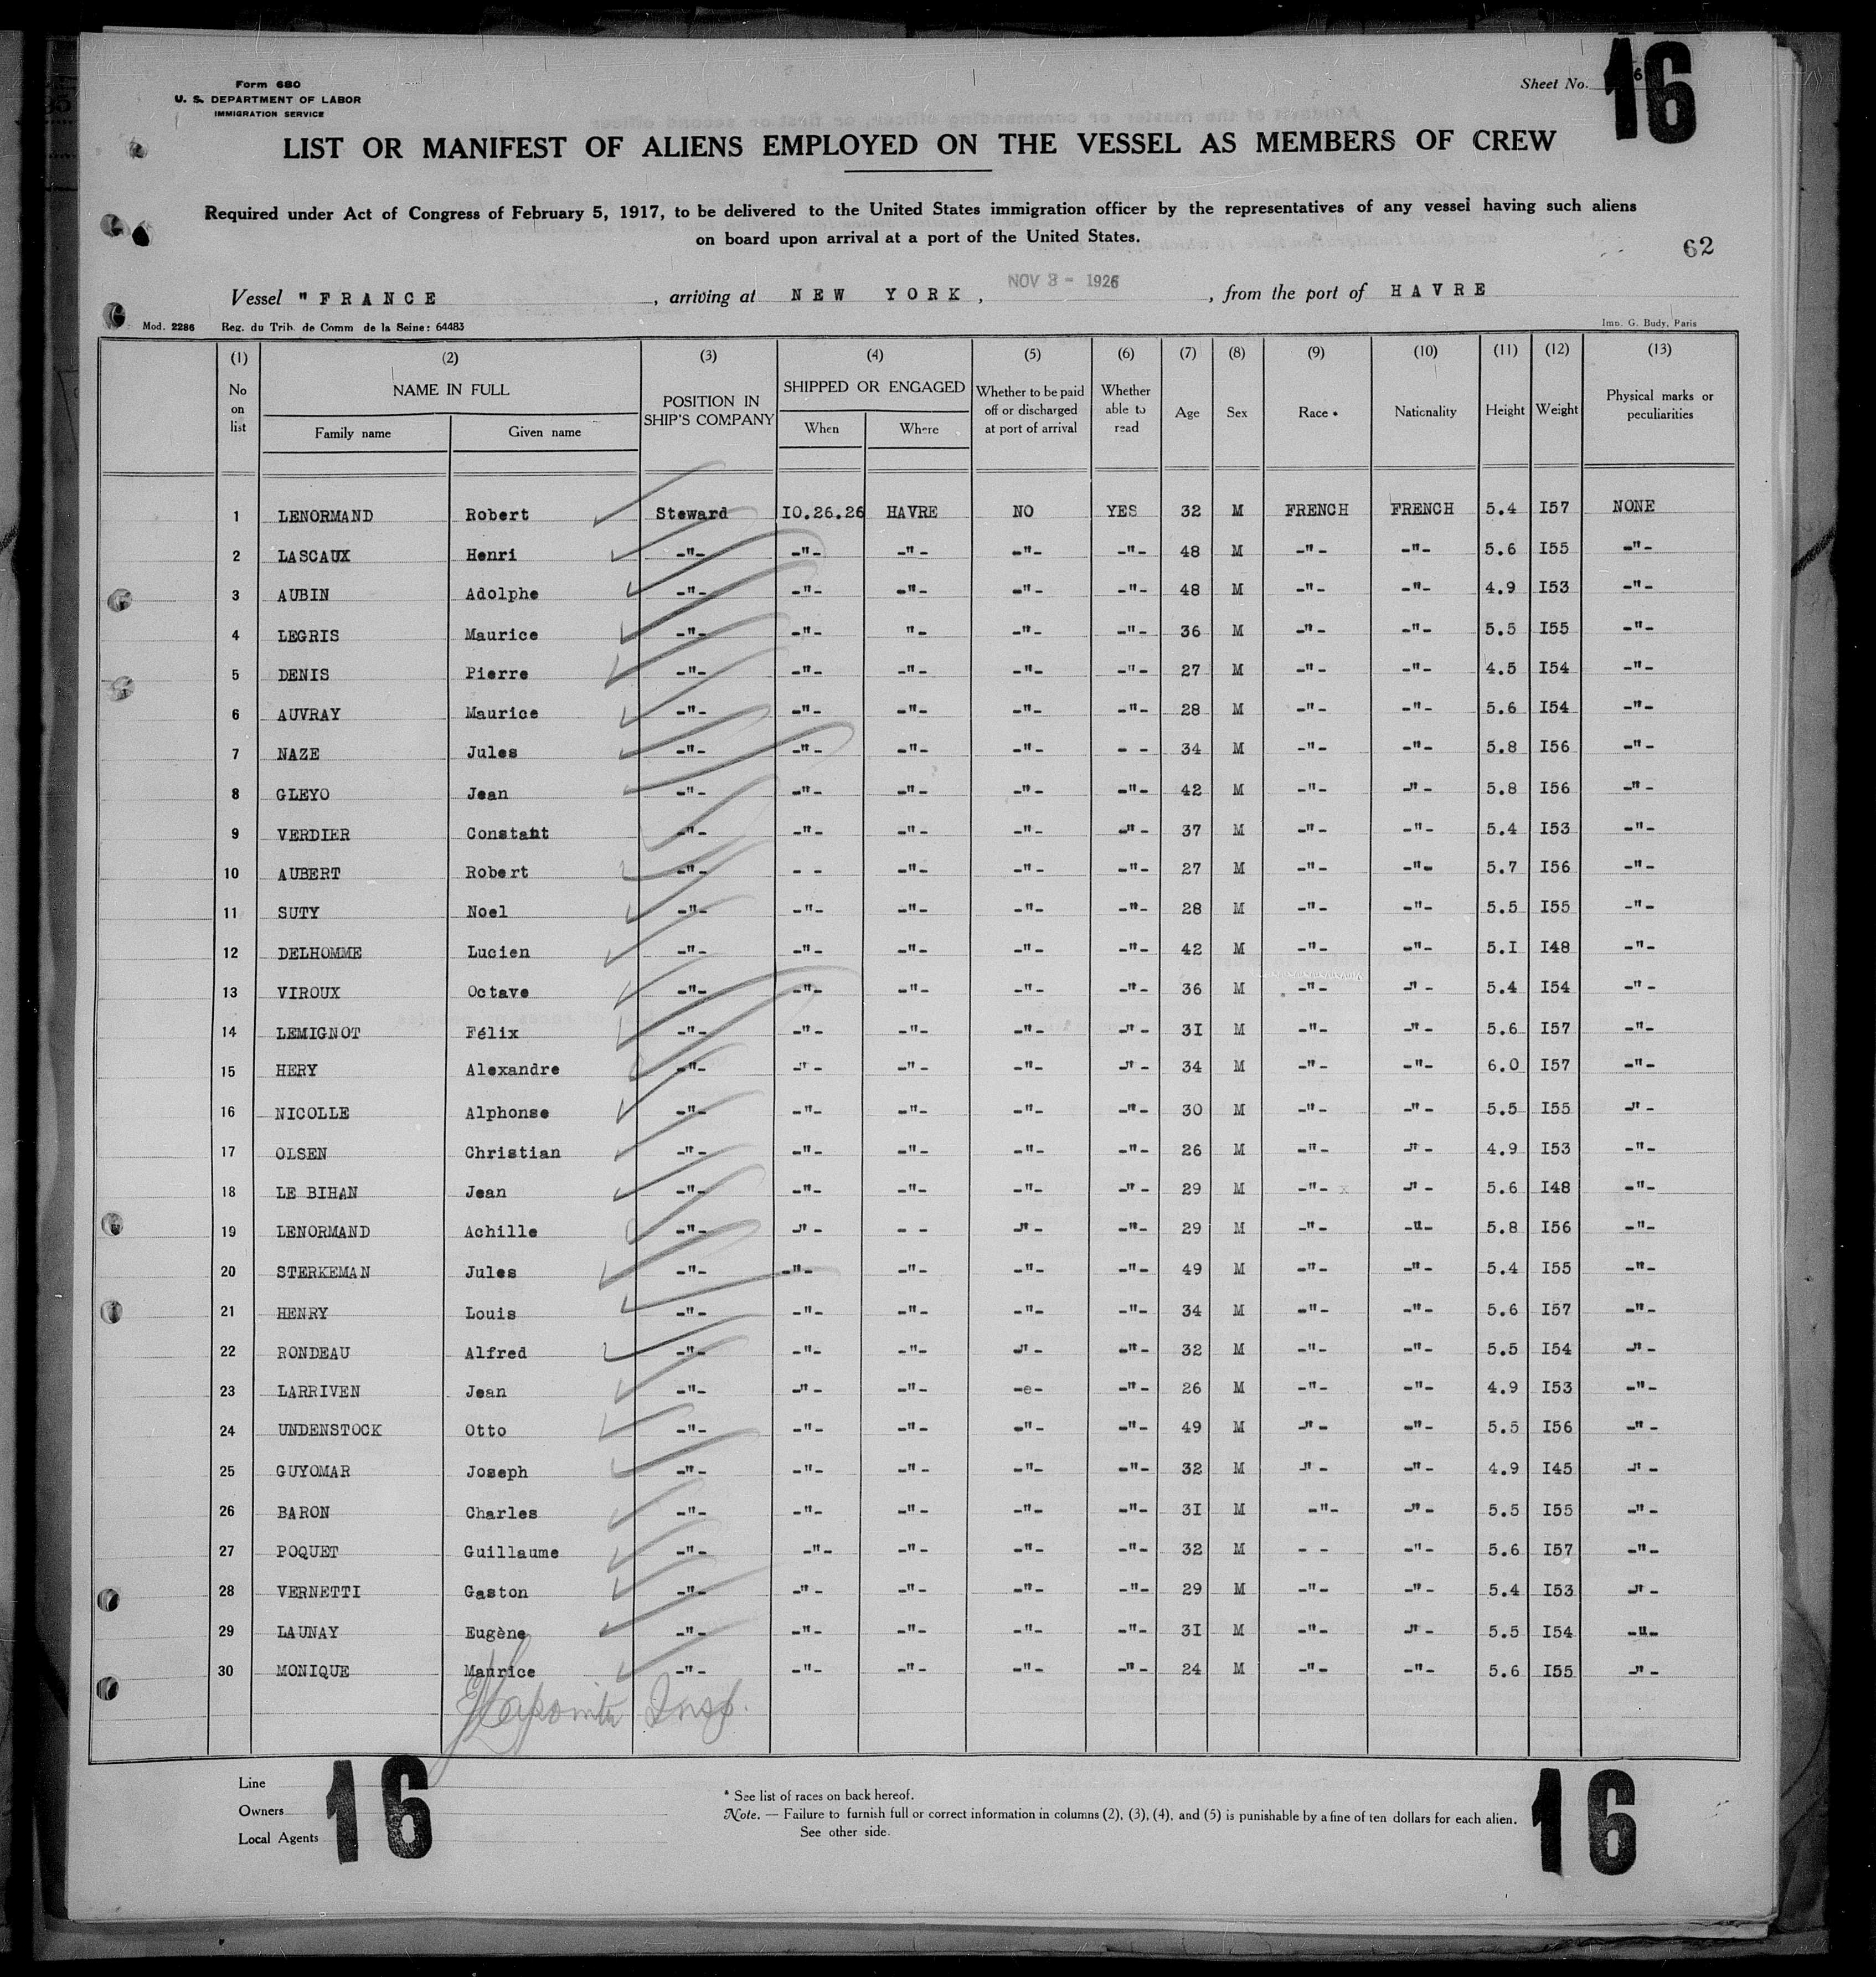 Form 680
U. S. DEPARTMENT OF LABOR
IMMIGRATION SERVICE
Sheet No. 16
LIST OR MANIFEST OF ALIENS EMPLOYED ON THE VESSEL AS MEMBERS OF CREW
Required under Act of Congress of February 5, 1917, to be delivered to the United States immigration officer by the representatives of any vessel having such aliens
on board upon arrival at a port of the United States.
62
Vessel "FRANCE, arriving at NEW YORK, NOV 3 - 1926, from the port of HAVRE
Mod. 2286 Reg. du Trib. de Comm de la Seine: 64483 Imp. G. Budy, Paris
(1) (2) (3) (4) (5) (6) (7) (8) (9) (10) (11) (12) (13)
No on list NAME IN FULL Family name Given name POSITION IN SHIP'S COMPANY SHIPPED OR ENGAGED When Where Whether to be paid off or discharged at port of arrival Whether able to read Age Sex Race * Nationality Height Weight Physical marks or peculiarities
1 LENORMAND Robert Steward IO.26.26 HAVRE NO YES 32 M FRENCH FRENCH 5.4 I57 NONE
2 LASCAUX Henri -"- -"- -"- -"- -"- 48 M -"- -"- 5.6 I55 -"-
3 AUBIN Adolphe -"- -"- -"- -"- -"- 48 M -"- -"- 4.9 I53 -"-
4 LEGRIS Maurice -"- -"- "- -"- -"- 36 M -"- -"- 5.5 I55 -"-
5 DENIS Pierre -"- -"- -"- -"- -"- 27 M -"- -"- 4.5 I54 -"-
6 AUVRAY Maurice -"- -"- -"- -"- -"- 28 M -"- -"- 5.6 I54 -"-
7 NAZE Jules -"- -"- -"- -"- - - 34 M -"- -"- 5.8 I56 -"-
8 GLEYO Jean -"- -"- -"- -"- -"- 42 M -"- -"- 5.8 I56 -"-
9 VERDIER Constant -"- -"- -"- -"- -"- 37 M -"- -"- 5.4 I53 -"-
10 AUBERT Robert -"- - - -"- -"- -"- 27 M -"- -"- 5.7 I56 -"-
11 SUTY Noel -"- -"- -"- -"- -"- 28 M -"- -"- 5.5 I55 -"-
12 DELHOMME Lucien -"- -"- -"- -"- -"- 42 M -"- -"- 5.I I48 -"-
13 VIROUX Octave -"- -"- -"- -"- -"- 36 M -"- -"- 5.4 I54 -"-
14 LEMIGNOT Félix -"- -"- -"- -"- -"- 3I M -"- -"- 5.6 I57 -"-
15 HERY Alexandre -"- -"- -"- -"- -"- 34 M -"- -"- 6.0 I57 -"-
16 NICOLLE Alphonse -"- -"- -"- -"- -"- 30 M -"- -"- 5.5 I55 -"-
17 OLSEN Christian -"- -"- -"- -"- -"- 26 M -"- -"- 4.9 I53 -"-
18 LE BIHAN Jean -"- -"- -"- -"- -"- 29 M -"- x -"- 5.6 I48 -"-
19 LENORMAND Achille -"- -"- - - -"- -"- 29 M -"- -"- 5.8 I56 -"-
20 STERKEMAN Jules -"- -"- -"- -"- -"- 49 M -"- -"- 5.4 I55 -"-
21 HENRY Louis -"- -"- -"- -"- -"- 34 M -"- -"- 5.6 I57 -"-
22 RONDEAU Alfred -"- -"- -"- -"- -"- 32 M -"- -"- 5.5 I54 -"-
23 LARRIVEN Jean -"- -"- -"- -e- -"- 26 M -"- -"- 4.9 I53 -"-
24 UNDENSTOCK Otto -"- -"- -"- -"- -"- 49 M -"- -"- 5.5 I56 -"-
25 GUYOMAR Joseph -"- -"- -"- -"- -"- 32 M -"- -"- 4.9 I45 -"-
26 BARON Charles -"- -"- -"- -"- -"- 3I M -"- -"- 5.5 I55 -"-
27 POQUET Guillaume -"- -"- -"- -"- -"- 32 M - - -"- 5.6 I57 -"-
28 VERNETTI Gaston -"- -"- -"- -"- -"- 29 M -"- -"- 5.4 I53 -"-
29 LAUNAY Eugène -"- -"- -"- -"- -"- 3I M -"- -"- 5.5 I54 -"-
30 MONIQUE Maurice -"- -"- -"- -"- -"- 24 M -"- -"- 5.6 I55 -"-
Insp.
Line
Owners
Local Agents
16
* See list of races on back hereof.
Note. — Failure to furnish full or correct information in columns (2), (3), (4), and (5) is punishable by a fine of ten dollars for each alien.
See other side.
16